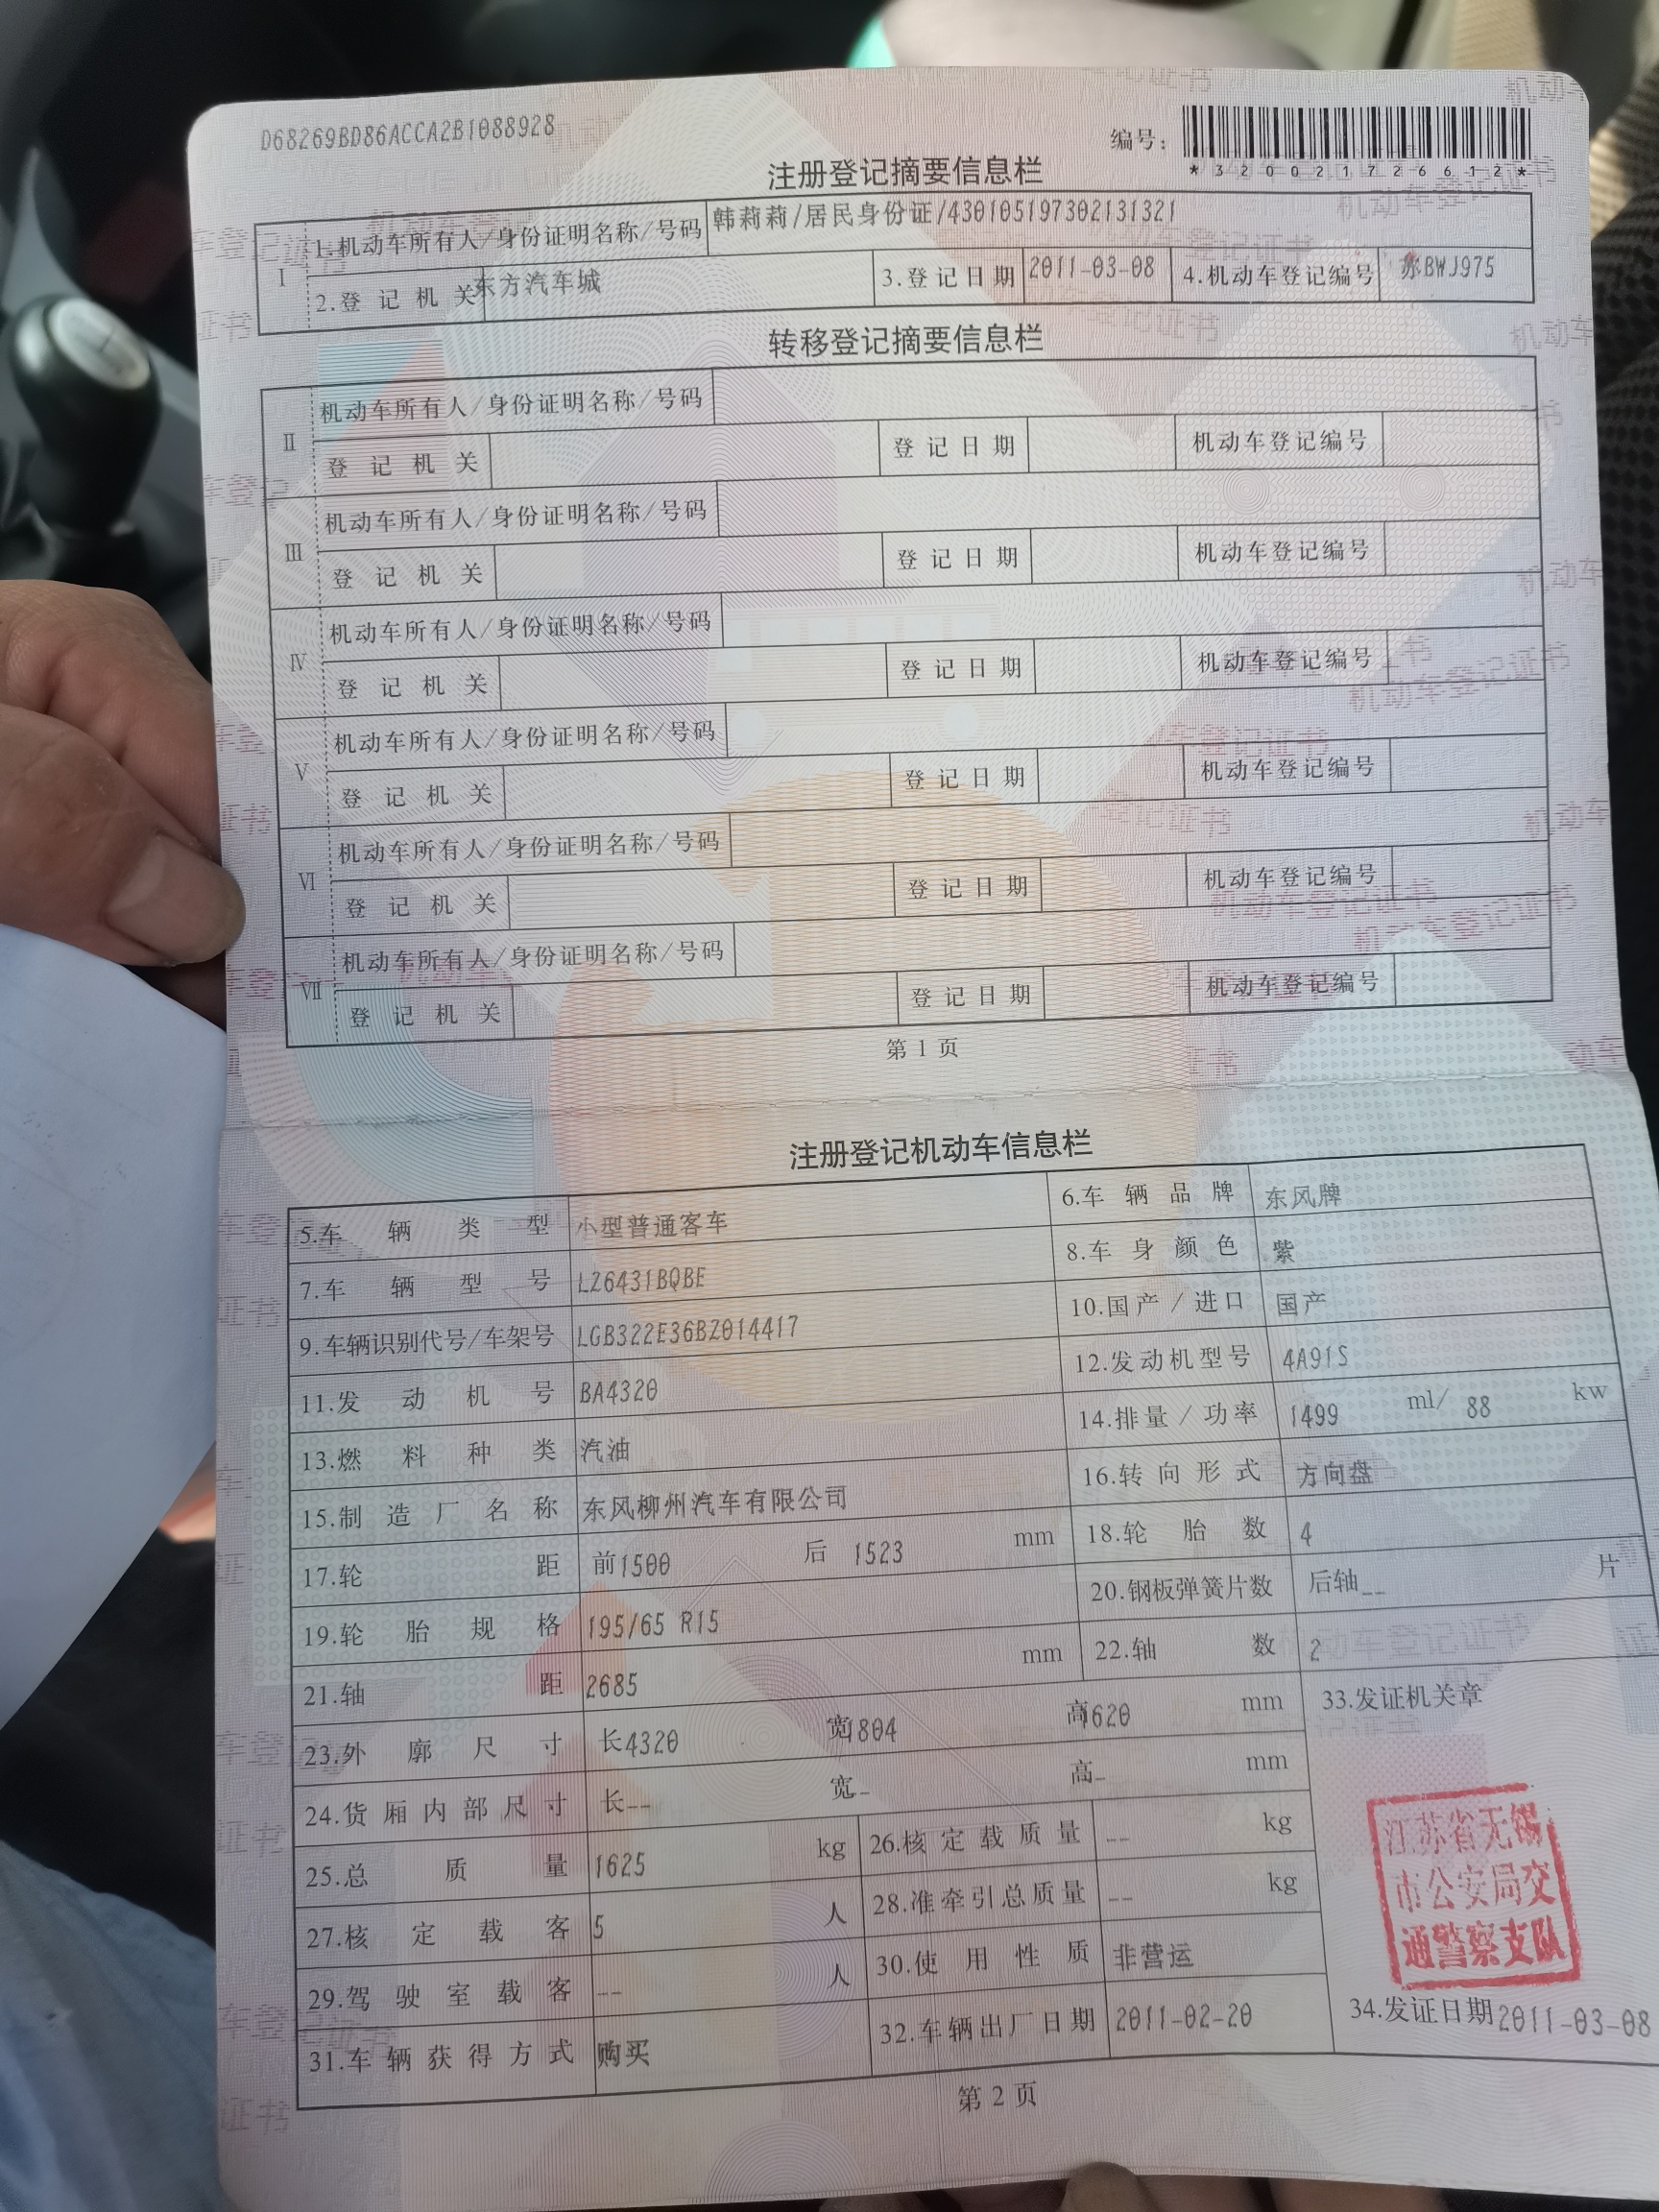 D68269BD86ACCA2B1088928
编号：
*320021726612*
注册登记摘要信息栏
I
1.机动车所有人/身份证明名称/号码 韩莉莉/居民身份证/430105197302131321
2.登记机关 东方汽车城 3.登记日期 2011-03-08 4.机动车登记编号 苏BWJ975
转移登记摘要信息栏
II
机动车所有人/身份证明名称/号码
登记机关 登记日期 机动车登记编号
III
机动车所有人/身份证明名称/号码
登记机关 登记日期 机动车登记编号
IV
机动车所有人/身份证明名称/号码
登记机关 登记日期 机动车登记编号
V
机动车所有人/身份证明名称/号码
登记机关 登记日期 机动车登记编号
VI
机动车所有人/身份证明名称/号码
登记机关 登记日期 机动车登记编号
VII
机动车所有人/身份证明名称/号码
登记机关 登记日期 机动车登记编号
第1页
注册登记机动车信息栏
5.车辆类型 小型普通客车 6.车辆品牌 东风牌
7.车辆型号 LZ6431BQBE 8.车身颜色 紫
9.车辆识别代号/车架号 LGB322E36BZ014417 10.国产/进口 国产
11.发动机号 BA4320 12.发动机型号 4A91S
13.燃料种类 汽油 14.排量/功率 1499 ml/ 88 kw
15.制造厂名称 东风柳州汽车有限公司 16.转向形式 方向盘
17.轮距 前1500 后 1523 mm 18.轮胎数 4
19.轮胎规格 195/65 R15 20.钢板弹簧片数 后轴-- 片
21.轴距 2685 mm 22.轴数 2
23.外廓尺寸 长4320 宽1804 高1620 mm 33.发证机关章
24.货厢内部尺寸 长-- 宽- 高- mm
25.总质量 1625 kg 26.核定载质量 -- kg
27.核定载客 5 人 28.准牵引总质量 -- kg
29.驾驶室载客 -- 人 30.使用性质 非营运
31.车辆获得方式 购买 32.车辆出厂日期 2011-02-20 34.发证日期 2011-03-08
江苏省无锡
市公安局交
通警察支队
第2页